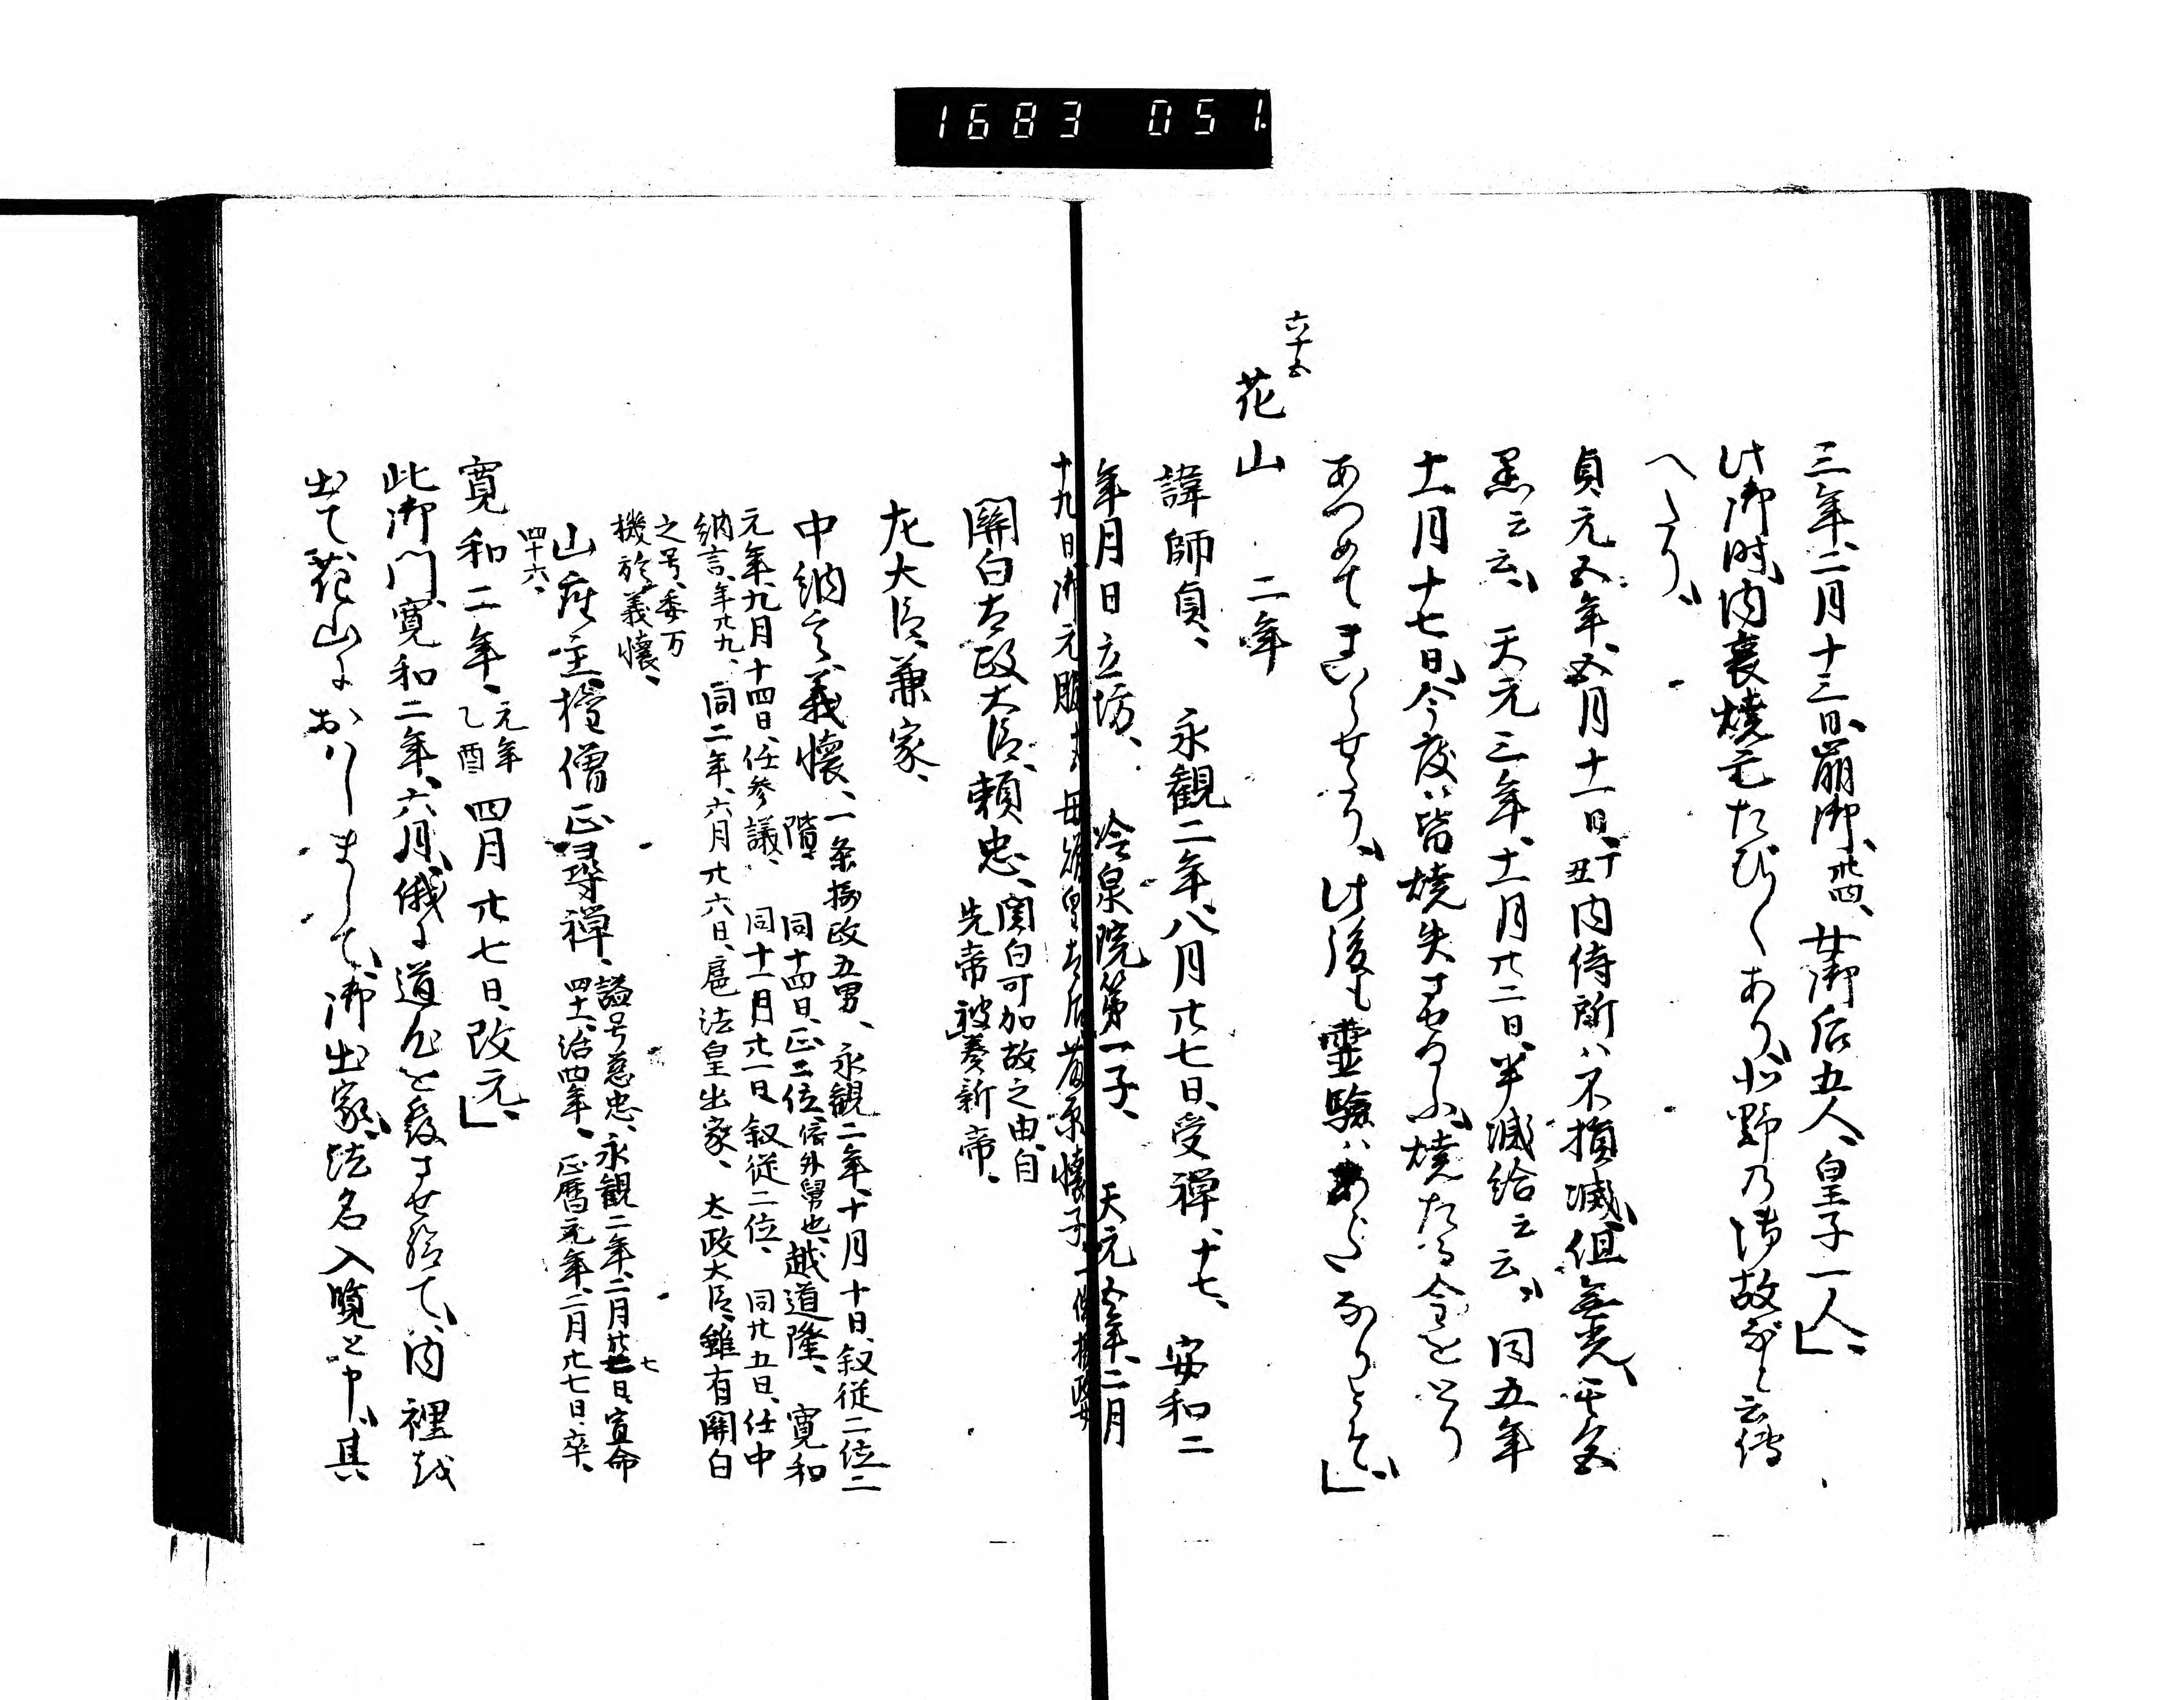 1683 051.
三年、二月十三日、崩御、卅四、女御后五人、皇子一人、」
此御時、内裏焼亡たび〱あり、北野乃御故など云傳
へたり、
貞元五年、五月十一日、丁丑内侍所ハ不損減、但無光、其色
黒云云、天元三年、十一月廿二日、半滅給云云、同五年
十一月十七日、今度ハ皆焼失するに、焼たる金をとり
あつめてまいらせたり、此後も霊驗ハあらたなりとぞ、」
六十五
花山 二年
諱師貞、永観二年、八月廿七日、受禅、十七、安和二
年月日立坊、冷泉院第一子、天元五年、二月
十九日、御元服、十五、母贈皇太后、藤原懐子、一条摂政女
關白太政大臣、頼忠、関白可加故之由、自
先帝被奏新帝、
左大臣、兼家、
中納言、義懐、一条摂政五男、永観二年、十月十日、叙従二位二
階、同十四日、正三位、依外舅也、越道隆、寛和
元年、九月十四日、任参議、同十一月廿一日、叙従二位、同廿五日、任中
納言、年廿九、同二年、六月廿六日、扈法皇出家、太政大臣、雖有關白
之号、委万
機於義懐、
山座主、權僧正尋禅、諡号慈忠、永観二年、二月廿七日、宣命
四十一、治四年、正暦元年、二月廿七日、卒、
四十六、
寛和二年、元年
乙酉四月廿七日、改元、」
此御門、寛和二年、六月、俄に道心を發させ給て、内裡を
出て花山におハしまして、御出家、法名入覺と申、其